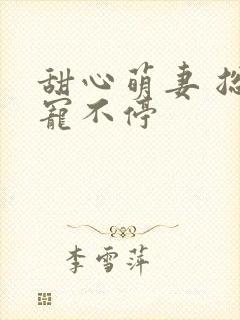 甜心萌妻
寵不停
李雪萍